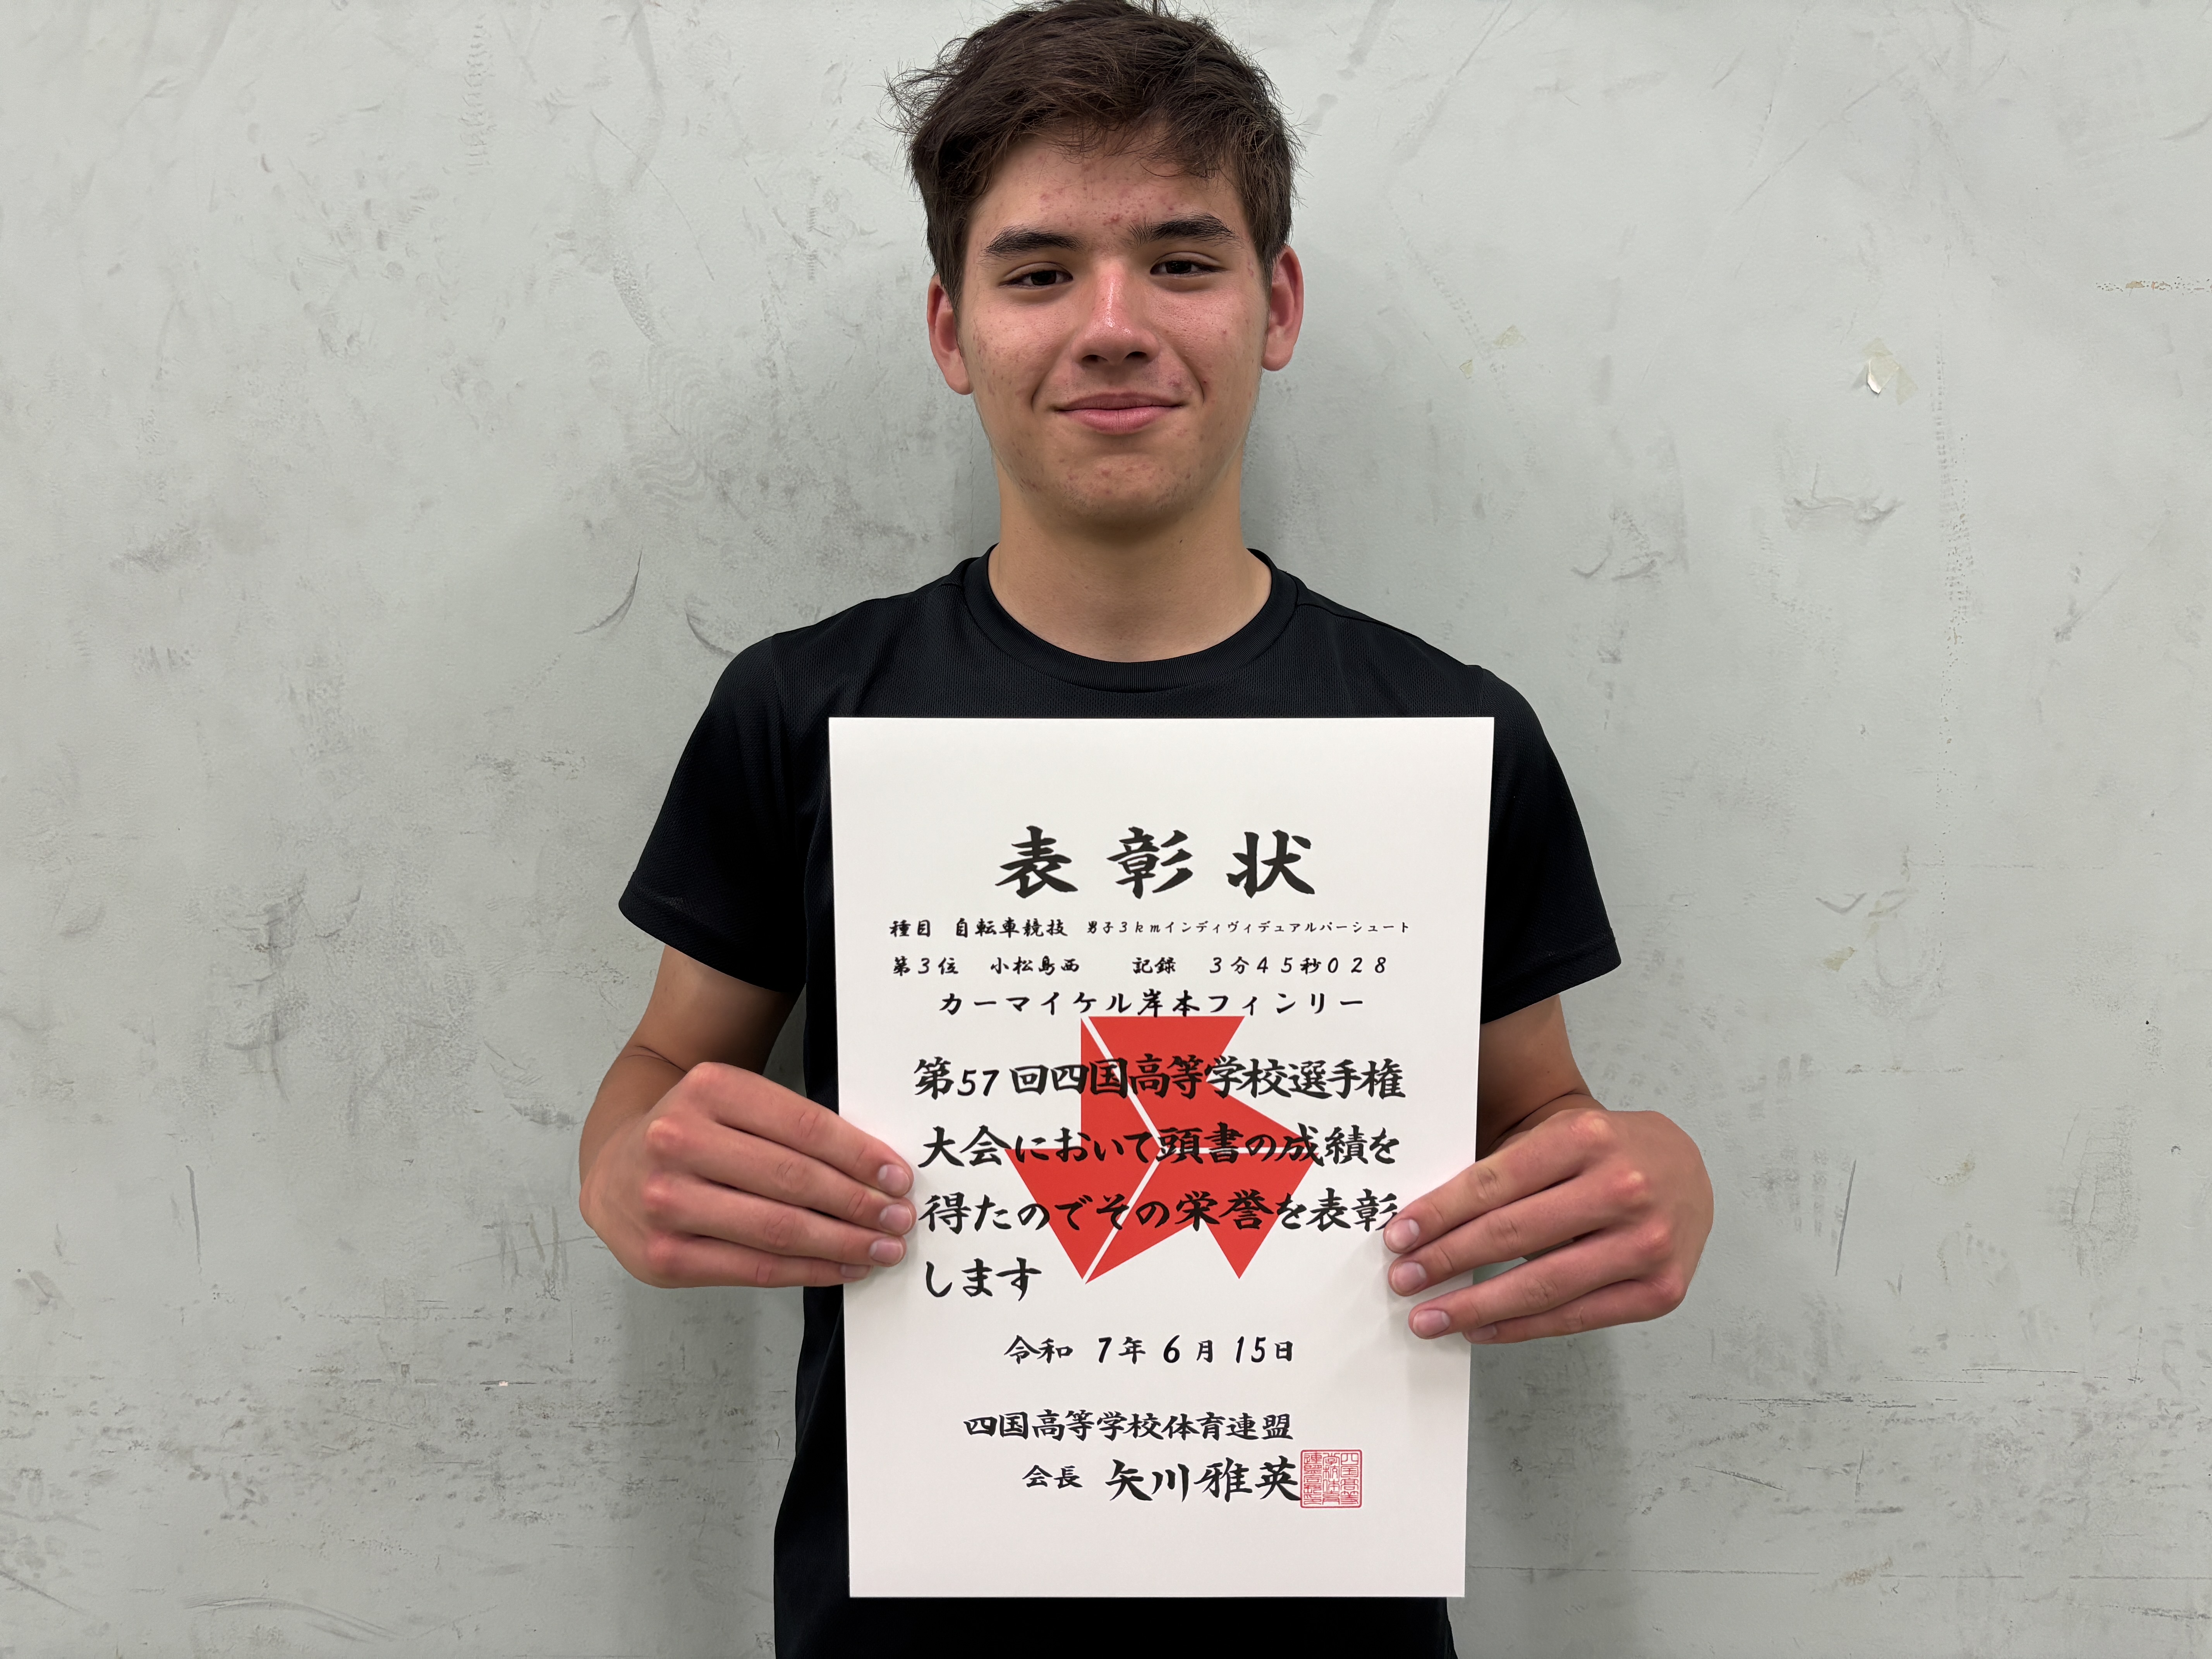 表彰状
種目 自転車競技 男子3kmインディヴィデュアルパーシュート
第3位 小松島西 記録 3分45秒028
カーマイケル岸本フィンリー
第57回四国高等学校選手権
大会において頭書の成績を
得たのでその栄誉を表彰
します
令和 7年 6月 15日
四国高等学校体育連盟
会長 矢川雅英